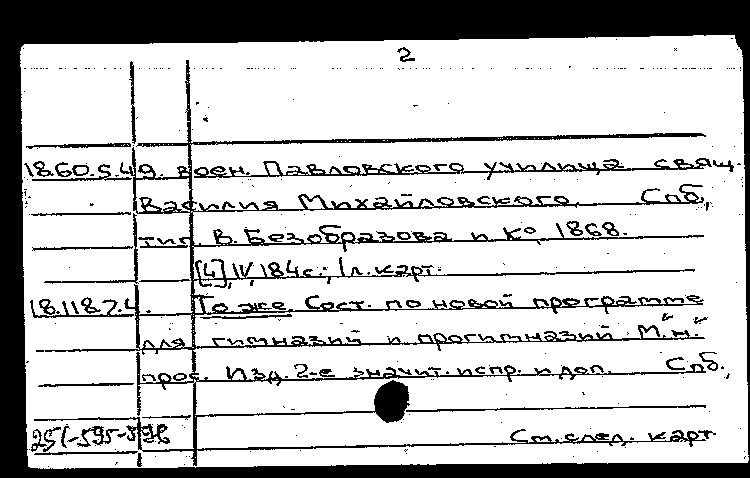 2
18.60.5.49. воен. Павловского училища свящ.
Василия Михайловского. Спб,
тип. В. Безобразова и Ко, 1868.
[4], IV, 184 с.; 1 л. карт.
18.118.7.4. То же. Сост. по новой программе
для гимназий и прогимназий М. "н."
прос. Изд. 2-е значит. испр. и доп. Спб.,
251-595-596
См. след. карт